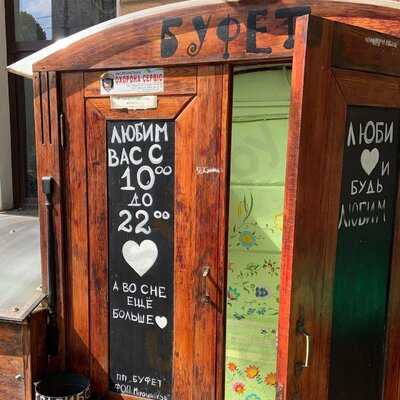 БУФЕТ
ОХОРОНА СЕРВІС
ЛЮБИМ
ВАС С
10 00
ДО
22 00
А ВО СНЕ
ЕЩЁ
БОЛЬШЕ
ПП „БУФЕТ"
ФОП
ЛЮБИ
И
БУДЬ
ЛЮБИМ